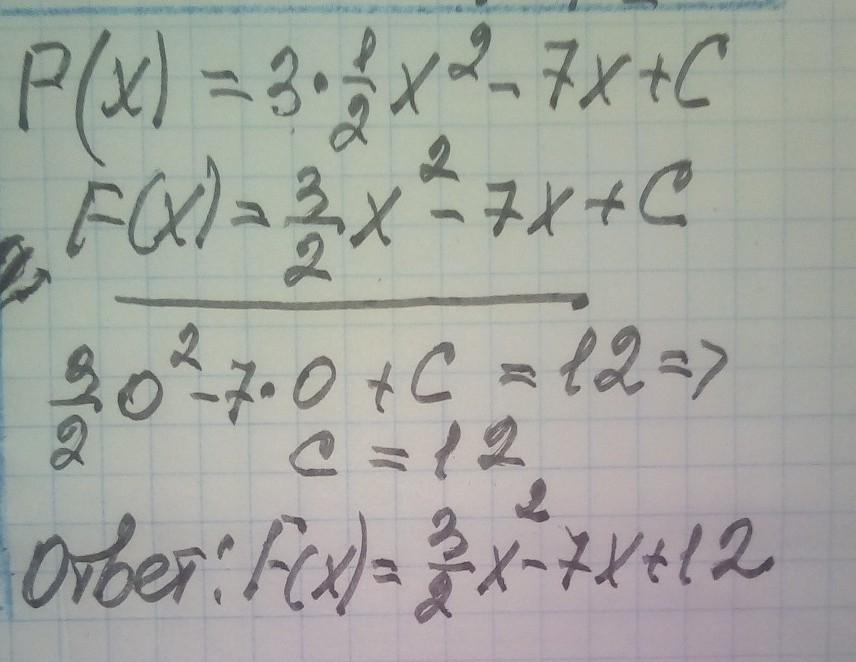 F(x) = 3·1/2 x² - 7x + C
F(x) = 3/2 x² - 7x + C
3/2 0² - 7·0 + C = 12 =>
C = 12
Ответ: F(x) = 3/2 x² - 7x + 12